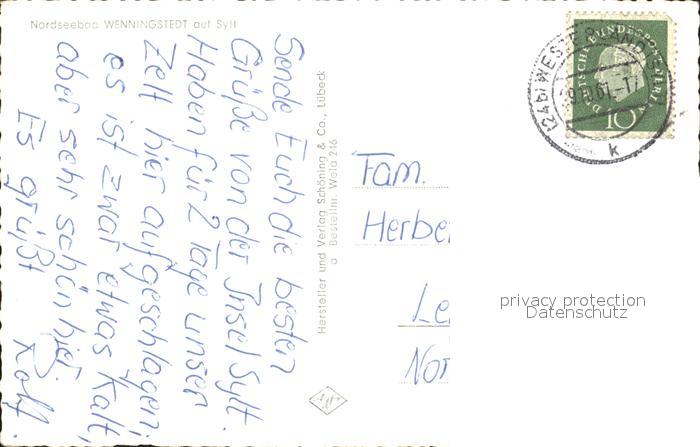 Nordseebad WENNINGSTEDT auf Sylt
Sende Euch die besten
Grüße von der Insel Sylt.
Haben für 2 Tage unser
Zelt hier aufgeschlagen,
es ist zwar etwas kalt,
aber sehr schön hier.
Es grüßt Rolf.
Hersteller und Verlag Schöning & Co., Lübeck
a Bestellnr. Wela 216
DEUTSCHE BUNDESPOST BERLIN
10
(24b) WESTERLAND
61.-17
k
Fam.
Herbe
Le
Nor
privacy protection
Datenschutz